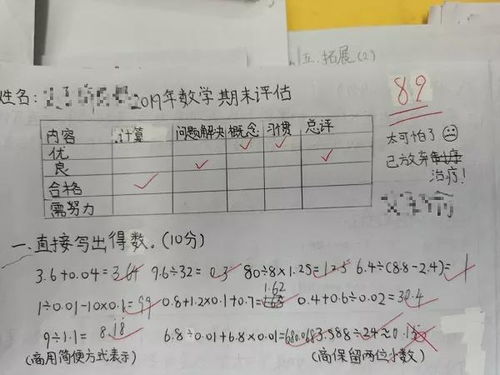 五.拓展(2)
姓名: 2019年数学期末评估
89
内容 计算 问题解决 概念 习惯 总评
优
良
合格
需努力
太可怕了
已放弃
治疗!
一.直接写出得数。(10分)
3.6+0.04=3.64 9.6÷32=0.3 80÷8×1.25=12.5 6.4÷(8.8-2.4)=1
1÷0.01-10×0.1=99 0.8+1.2×0.1+0.7=1.62 0.4+0.6÷0.02=30.4
9÷1.1=8.18 6.8÷0.01+6.8×0.01=680.068 3.588÷24≈0.15
(商用简便方式表示) (商保留两位小数)